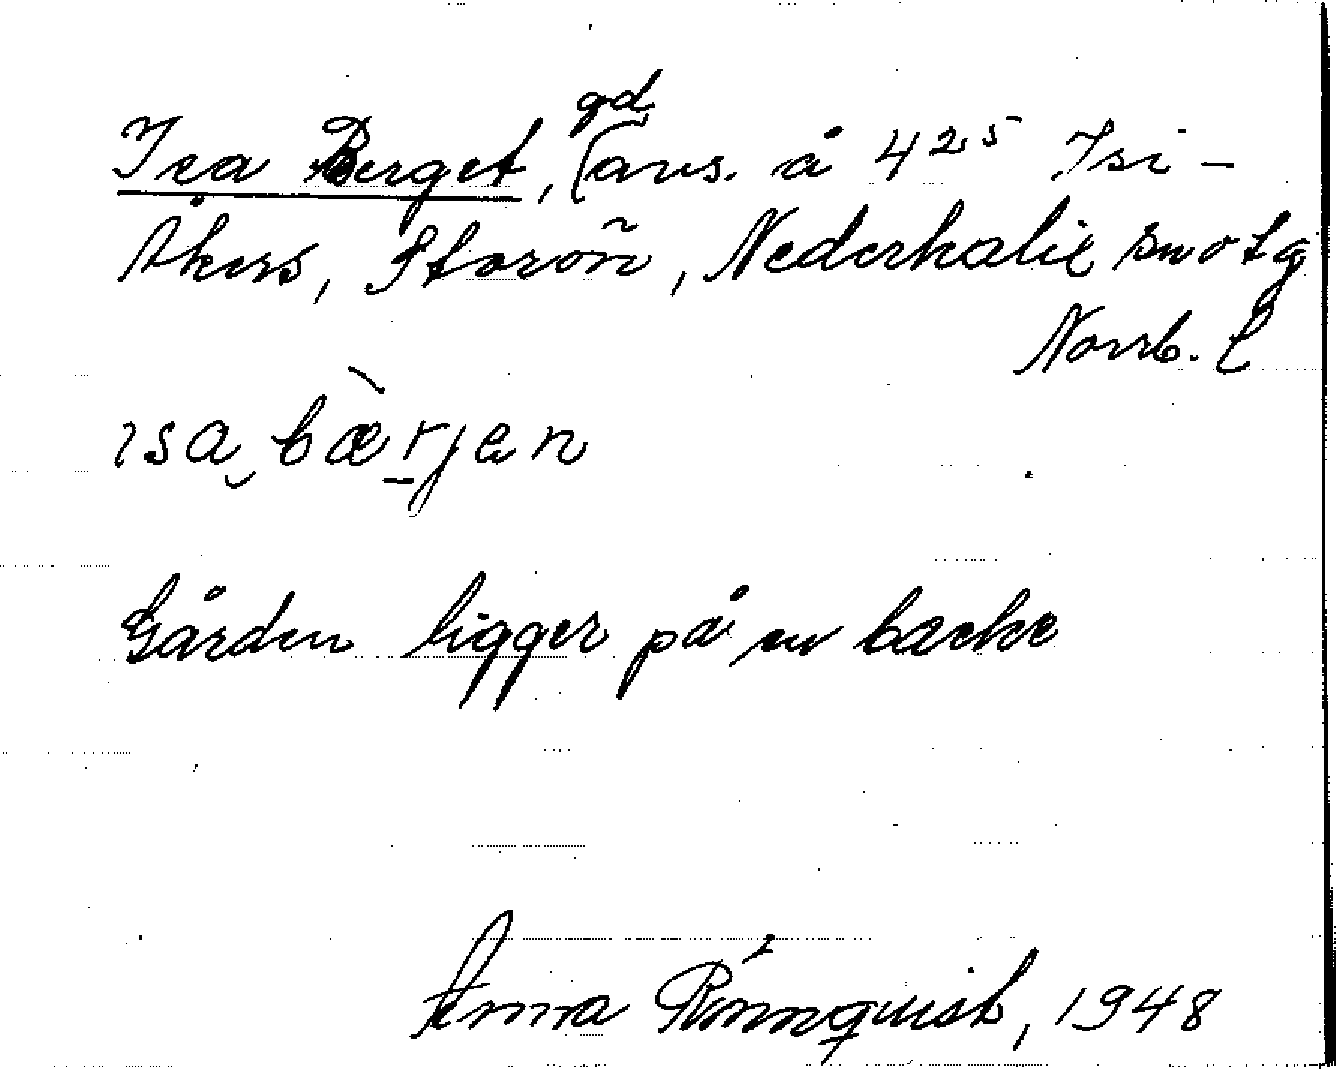 gd
Isa Berget, (avs. å 425 Isi-
Åkers, Storön, Nederkalix snotg
Norrb. l
ısa bæ̀rjen
Gården ligger på en backe
Anna Rönnquist, 1948